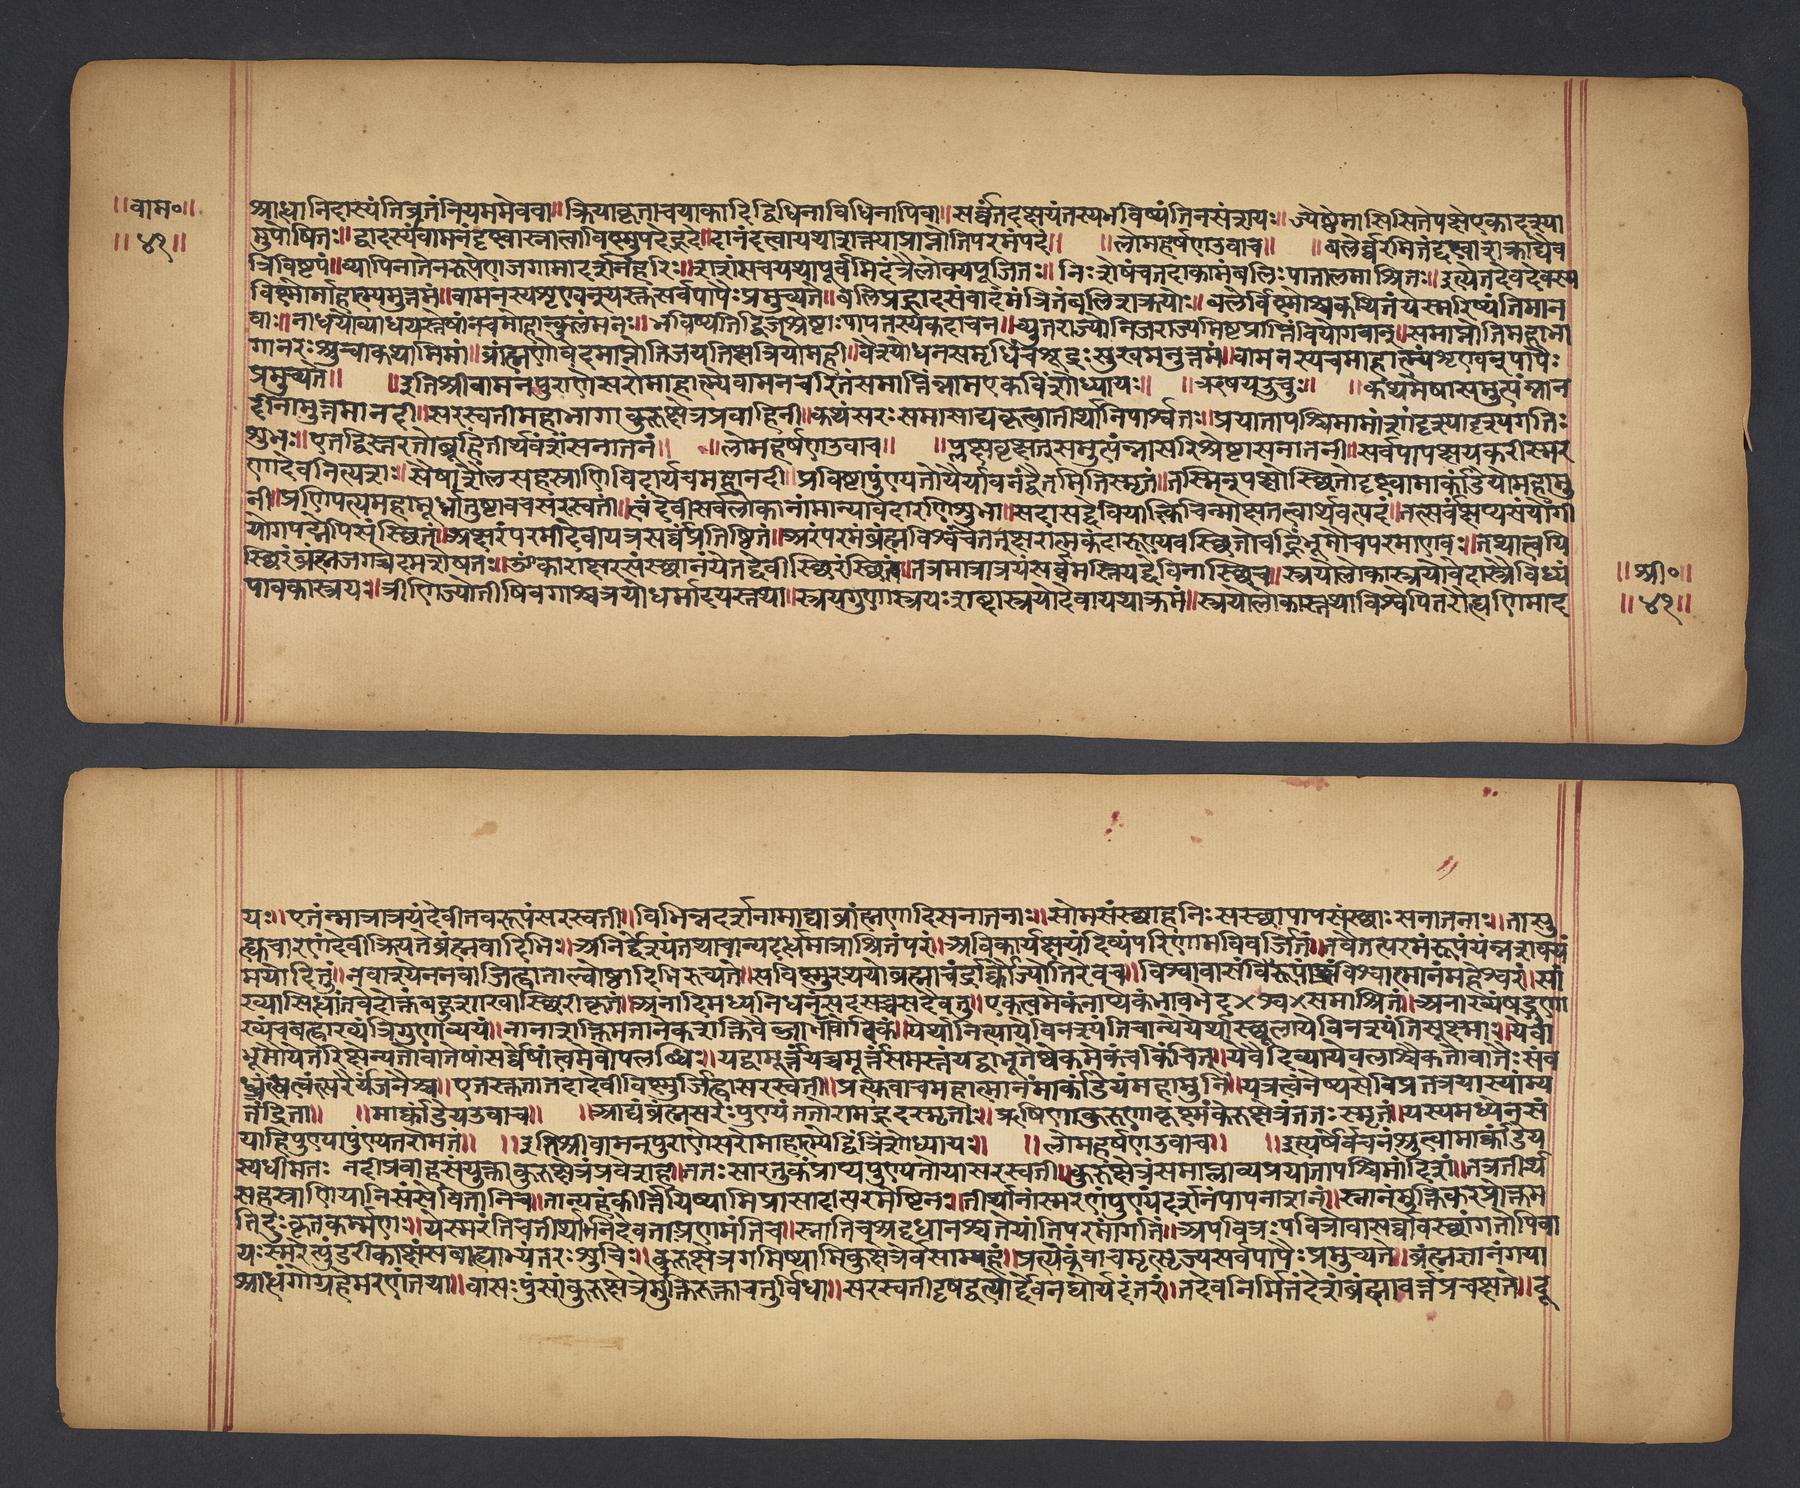 ॥वाम॰॥
॥४१॥
आत्धानिदास्यंतिव्रतंनियममेववा॥क्रियाकृताचयाकाहिद्विधिनाविधिनापिवा॥सर्व्वंतदक्षयंतस्यभविष्यंतिनसंशयः॥ज्येष्ठेमासिसितेपक्षेएकादश्या
मुपोषितः॥द्वादश्यंवामनंदृष्ट्वास्नात्वाविष्णुपदेह्रदे॥दानंदत्वायथाशक्त्याप्राप्नोतिपरमंपदं॥ ॥लोमहर्षणउवाच॥ ॥बलेर्व्वरमिमंदत्त्वाशक्रायच
त्रिविष्टपं॥व्यापिनातेनरूपेणजगामादर्शनंहरिः॥शशांसचयथापूर्वमिंद्रंत्रैलोक्यपूजितः॥निःशेषंचतदाकामंबलिःपातालमाश्रितः॥इत्येतद्देवदेवस्य
विष्णोर्माहात्म्यमुत्तमं॥वामनस्यशृण्वन्यस्तुसर्वपापैःप्रमुच्यते॥बलिप्रह्लादसंवादंमंत्रितंबलिशक्रयोः॥बलेर्विष्णोश्चकथितंयेस्मरिष्यंतिमान
वाः॥नाधयोव्याधयस्तेषांनचमोहाकुलंमनः॥भविष्यतिद्विजश्रेष्टाःपापंतस्यकदाचन॥च्युतराज्योनिजंराज्यमिष्टप्राप्तिंवियोगवान्॥समाप्नोतिमहाभा
गानरःश्रुत्वाकथामिमां॥ब्राह्मणोवेदमाप्नोतिजयतिक्षत्रियोमहीं॥वैश्योधनसमृद्धिंचशूद्रःसुखमनुत्तमं॥वामनस्यचमाहात्म्यंशृण्वन्पापैः
प्रमुच्यते॥ ॥इतिश्रीवामनपुराणेसरोमाहात्म्येवामनचरितंसमाप्तिंन्नामएकविंशोध्यायः॥ ॥ऋषयऊचुः॥ ॥कथमेषासमुत्पंन्नान
दीनामुत्तमानदी॥सरस्वतीमहाभागाकुरुक्षेत्रप्रवाहिनी॥कथंसरःसमासाद्यकृत्वातीर्थानिपार्श्वतः॥प्रयातापश्चिमामाशांदृश्यादृश्यगतिः
शुभः॥एतद्विस्तरतोब्रूहितीर्थवंशंसनातनं॥ ॥लोमहर्षणउवाच॥ ॥प्लक्षवृक्षात्समुत्पंन्नासरिश्रेष्टासनातनी॥सर्वपापक्षयकरीस्मर
णादेवनित्यशः॥सैषाशैलसहस्राणिविदार्यचमहानदी॥प्रविष्टापुंण्यतोयैर्यावनंद्वैतमितिस्मृतं॥तस्मिन्रुपक्षेस्थितोदृष्ट्वामार्कंडेयोमहामु
नी॥प्रणिपत्यमहामूर्ध्नातुष्टावचसरस्वतीं॥त्वंदेवीसर्वलोकानांमान्यावेदारणिशुभा॥सदासद्देवियत्किंचिन्मोक्षतत्वार्थवत्पदं॥तत्सर्वंक्षप्यसंयोगी
योगपद्मपिसंस्थितं॥अक्षरंपरमंदेवीयत्रसर्व्वंप्रतिष्ठितं॥अक्षरंपरमंब्रह्मविश्वंचैतत्क्षरात्मकंदारुण्यवस्थितोवह्निर्भूमौचपरमाणवः॥तथात्वयि
स्थिरंब्रंह्मजगच्चेदमशेषतः॥ॐकाराक्षरसंस्थानंयेतद्देवीस्थिरंस्थितं॥तत्रमात्रात्रयंसर्व्वमस्तियद्देविनास्थिच॥स्त्रयोलोकास्त्रयोवेदास्त्रैविध्यं
पावकास्त्रयः॥त्रीणिज्योतीषिवर्गाश्चत्रयोधर्मादयस्तथा॥स्त्रयगुणास्त्रयःशब्दास्त्रयोदेवायथाक्रमं॥स्त्रयोलोकास्तथाविश्वेपितरोह्यणिमाद
॥श्री॰॥
॥४१॥
यः॥एतंन्मात्रात्रयंदेवीतवरूपंसरस्वती॥विभिन्नदर्शनामाद्याब्रांह्मणोदिसनातनाः॥सोमसंस्थाहनिःसस्थापापसंस्थाःसनातनाः॥तास्तु
त्धुचारणंदेवीक्रियंतेब्रंह्मवादिभिः॥अनिर्द्देश्यंतथाचान्यदर्धमात्राश्रितंपरं॥अविकार्यक्षयंदिव्यंपरिणामविवर्जितं॥तवेतत्परमंरूपंयन्नशक्यं
मयोदितुं॥नचाश्येननवाजिह्वाताल्वोष्ठादिभिरुच्यते॥सविष्णुरथयोब्रह्माचंद्रार्कज्योतिरेवच॥विश्वावासंविश्वरूपंविश्वात्मानंमहेश्वरं॥सां
ख्यासिधांतवेदोक्तंबहुशाखास्थिरीकृतं॥अनादिमध्यनिधनंसदसच्चसदेवतु॥एकंत्वनेकंनाप्येकंभावभेद×श्व×समाश्रितं॥अनाख्यंषड्गुणा
ख्यंचबह्वाख्यंत्रिगुणाव्ययं॥नानाशक्तिमतानेकशक्तिवैज्ञानिकं॥येर्थानित्यायेविनश्यंतिचान्येयेर्थाःस्थूलायेविनश्यंतिसूक्ष्माः॥येर्वा
भूमौयेंतरिक्षेन्यतोवातेषांसर्व्वेषांत्वमेवोपलब्धिः॥यद्वामूर्त्तंयच्चमूर्त्तंसमस्तंयद्वाभूतेष्वेकमेकंचकिंचित्॥यवेदिव्यायेबलाश्चैकतोवातैःसंव
ध्यंत्वत्स्वरैर्व्यंजनैश्च॥एतस्तुतातदादेवीविष्णुर्जिह्वासरस्वती॥प्रत्युवाचमहात्मानंमार्कंडेयंमहामुनिं॥यत्रत्वंनेष्यसेविप्रतत्रयास्याम्य
तंद्रिता॥ ॥मार्कंडेयउवाच॥ ॥आद्यंब्रंह्मसरःपुण्यंततोरामह्रदस्मृताः॥ऋषिणाकुरुणाकृष्टंकुरुक्षेत्रंततःस्मृतं॥यस्यमध्येनसं
याहिपुण्यापुंण्यतरोमतां॥ ॥इतिश्रीवामनपुराणेसरोमाहात्म्येद्वित्रिंशोध्यायः॥ ॥लोमहर्षणउवाच॥ ॥इत्यर्षेर्वचनंश्रुत्वामार्कंडेय
स्यधीमतः नदीप्रवाहसंयुक्ताकुरुक्षेत्रंप्रवेशह॥ततःसारतुकंप्राप्यपुण्यतोयासरस्वती॥कुरुक्षेत्रंसमाप्लाव्यप्रयातापश्चिमांदिशं॥तत्रतीर्थ
सहस्राणियानिसंसेवितानिच॥तान्यहंकीर्त्तयिष्यामिप्रसादात्परमेष्टिनः॥तीर्थानांस्मरणंपुण्यंदर्शनंपापनाशनं॥स्नानंमुक्तिकरंप्रोक्तम
तिदुःकृतकर्म्मणः॥येस्मरंतिचतीर्थानिदेवताप्रीणयंतिच॥स्नातिचश्रद्दधानश्चतेयांतिपरमांगतिं॥अपवित्रःपवित्रोवासर्व्वावस्थांगतोपिवा
यःस्मरेत्पुंडरीकाक्षंसबाह्याभ्यंतरःशुचिः॥कुरुक्षेत्रंगमिष्यामिकुरुक्षेत्रेवसाम्यहं॥प्रत्येकंवाचमुत्सृज्यसर्वपापैःप्रमुच्यते॥ब्रह्मज्ञानंगया
श्राध्धंगोग्रहेमरणंतथा॥वासःपुंसांकुरुक्षेत्रेमुक्तिरुक्ताचतुर्विधा॥सरस्वतीदृषद्वत्योर्द्देवनद्योर्यदंतरं॥तंदेवनिर्मितंदेशंब्रंह्मावर्त्तंप्रचक्षते॥दू